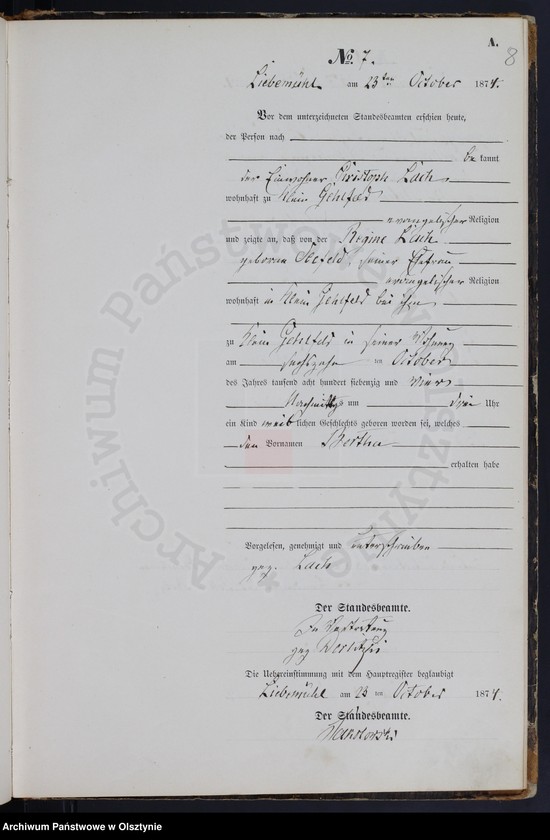 A.
8
No. 7.
Liebemühl am 23ten October 1874.
Vor dem unterzeichneten Standesbeamten erschien heute,
der Person nach
be kannt
der Einwohner Christoph Lach
wohnhaft zu Klein Gehlfeld
evangelischer Religion
und zeigte an, daß von der Regine Lach
geboren seiner Ehefrau
evangelischer Religion
wohnhaft in Klein Gehlfeld bei ihm
zu Klein Gehlfeld in seiner Wohnung
am sechszehn ten October
des Jahres tausend acht hundert siebenzig und vier
Nachmittags um drei Uhr
ein Kind weib lichen Geschlechts geboren worden sei, welches
den Vornamen Bertha
erhalten habe
Vorgelesen, genehmigt und unterschrieben
gez. Lach
Der Standesbeamte.
In Vertretung
gez
Die Uebereinstimmung mit dem Hauptregister beglaubigt
Liebemühl am 23 ten October 1874.
Der Standesbeamte.
Archiwum Państwowe w Olsztynie
Archiwum Państwowe w Olsztynie